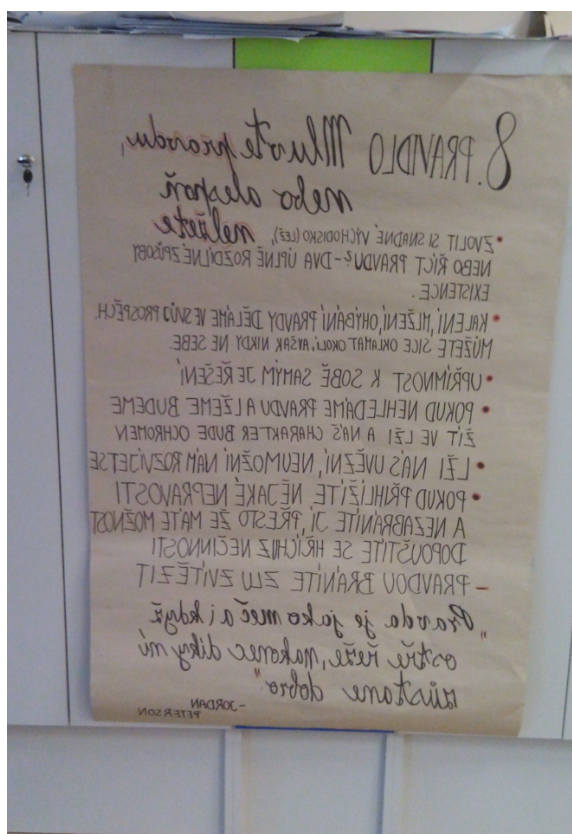 8. PRAVIDLO Mluvte pravdu,
nebo alespoň
nelžete
• ZVOLIT SI SNADNÉ VÝCHODISKO (LEŽ),
NEBO ŘÍCT PRAVDU? - DVA ÚPLNĚ ROZDÍLNÉ ZPŮSOBY
EXISTENCE.
• KALENÍ, MLŽENÍ, OHÝBÁNÍ PRAVDY DĚLÁME VE SVŮJ PROSPĚCH.
MŮŽETE SICE OKLAMAT OKOLÍ, AVŠAK NIKDY NE SEBE.
• UPŘÍMNOST K SOBĚ SAMÝM JE ŘEŠENÍ
• POKUD NEHLEDÁME PRAVDU A LŽEME BUDEME
ŽÍT VE LŽI A NÁŠ CHARAKTER BUDE OCHROMEN
• LŽI NÁS UVĚZNÍ, NEUMOŽNÍ NÁM ROZVÍJET SE
• POKUD PŘIHLÍŽÍTE NĚJAKÉ NEPRAVOSTI
A NEZABRÁNÍTE JÍ, PŘESTO ŽE MÁTE MOŽNOST
DOPOUŠTÍTE SE HŘÍCHU Z NEČINNOSTI
- PRAVDOU BRÁNÍTE ZLU ZVÍTĚZIT
"Pravda je jako meč a i když
ostře řeže, nakonec díky ní
zůstane dobro"
- JORDAN
PETERSON